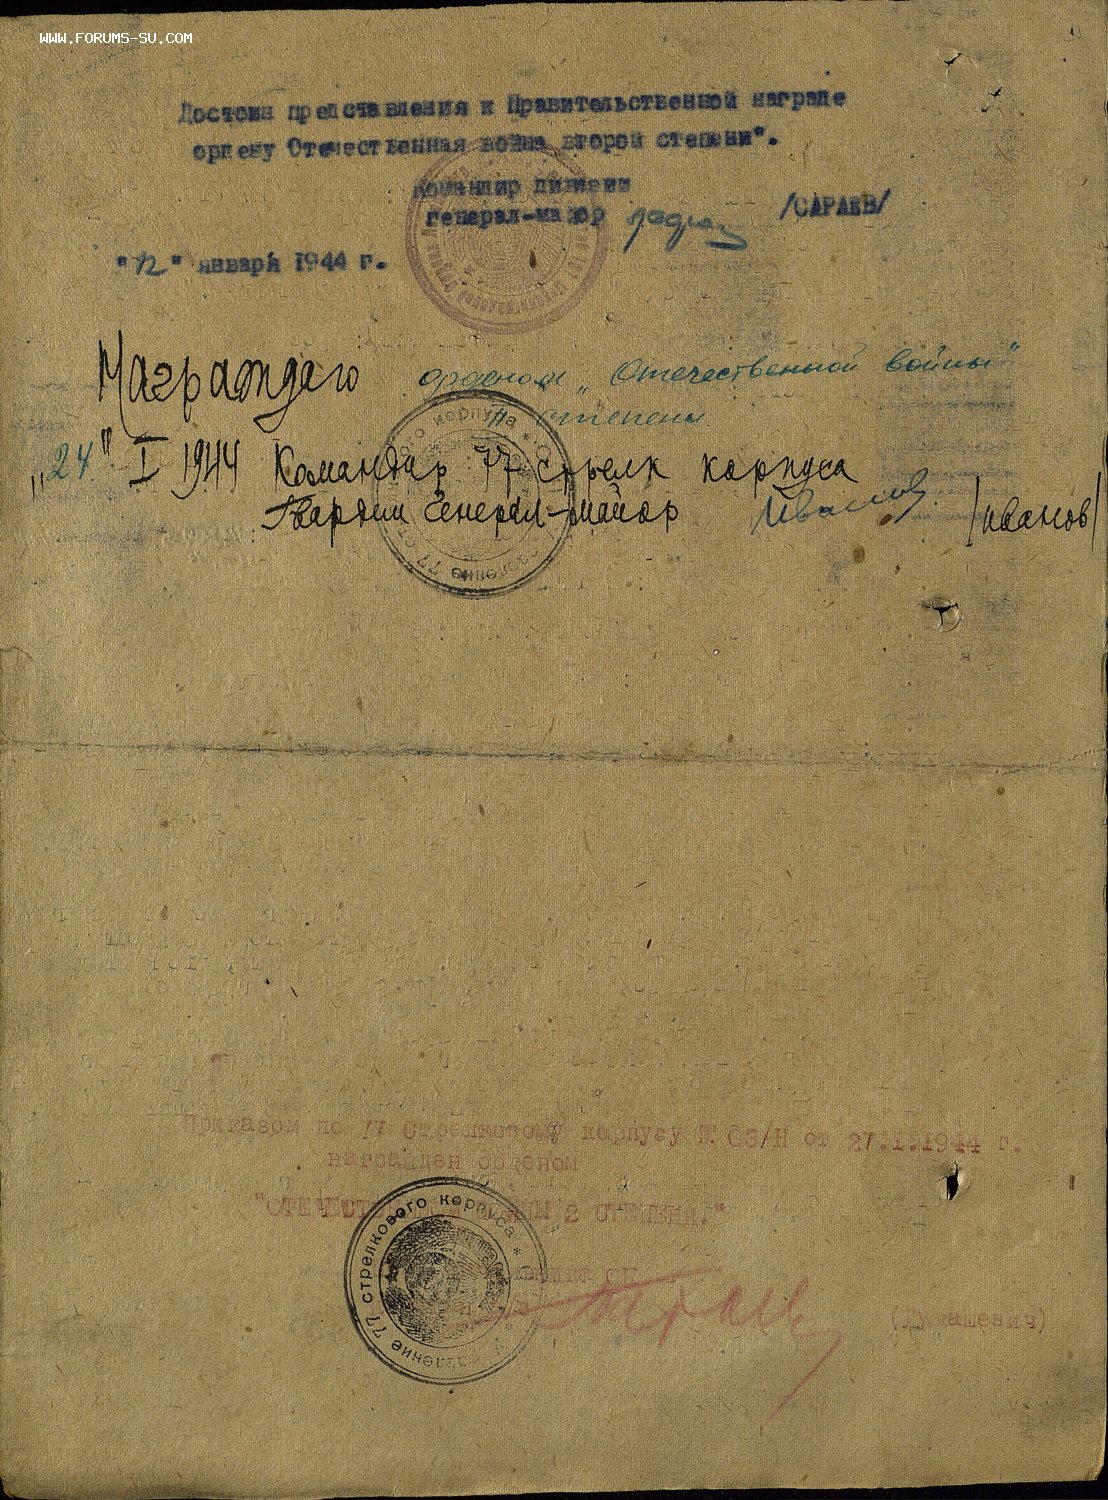 WWW.FORUMS-SU.COM
Достоин представления к Правительственной награде
ордену Отечественная война второй степени".
командир дивизии
генерал-майор /САРАЕВ/
"12" января 1944 г.
Награждаю орденом „Отечественной войны"
II степени
„24" I 1944 Командир 77 стрелк корпуса
Гвардии Генерал-майор Иванов /Иванов/
управление 77 стрелкового корпуса *
Приказом по 77 Стрелковому корпусу № 03/Н от 27.1.1944 г.
награжден орденом
"ОТЕЧЕСТВЕННОЙ ВОЙНЫ 2 СТЕПЕНИ."
управление 77 стрелкового корпуса *